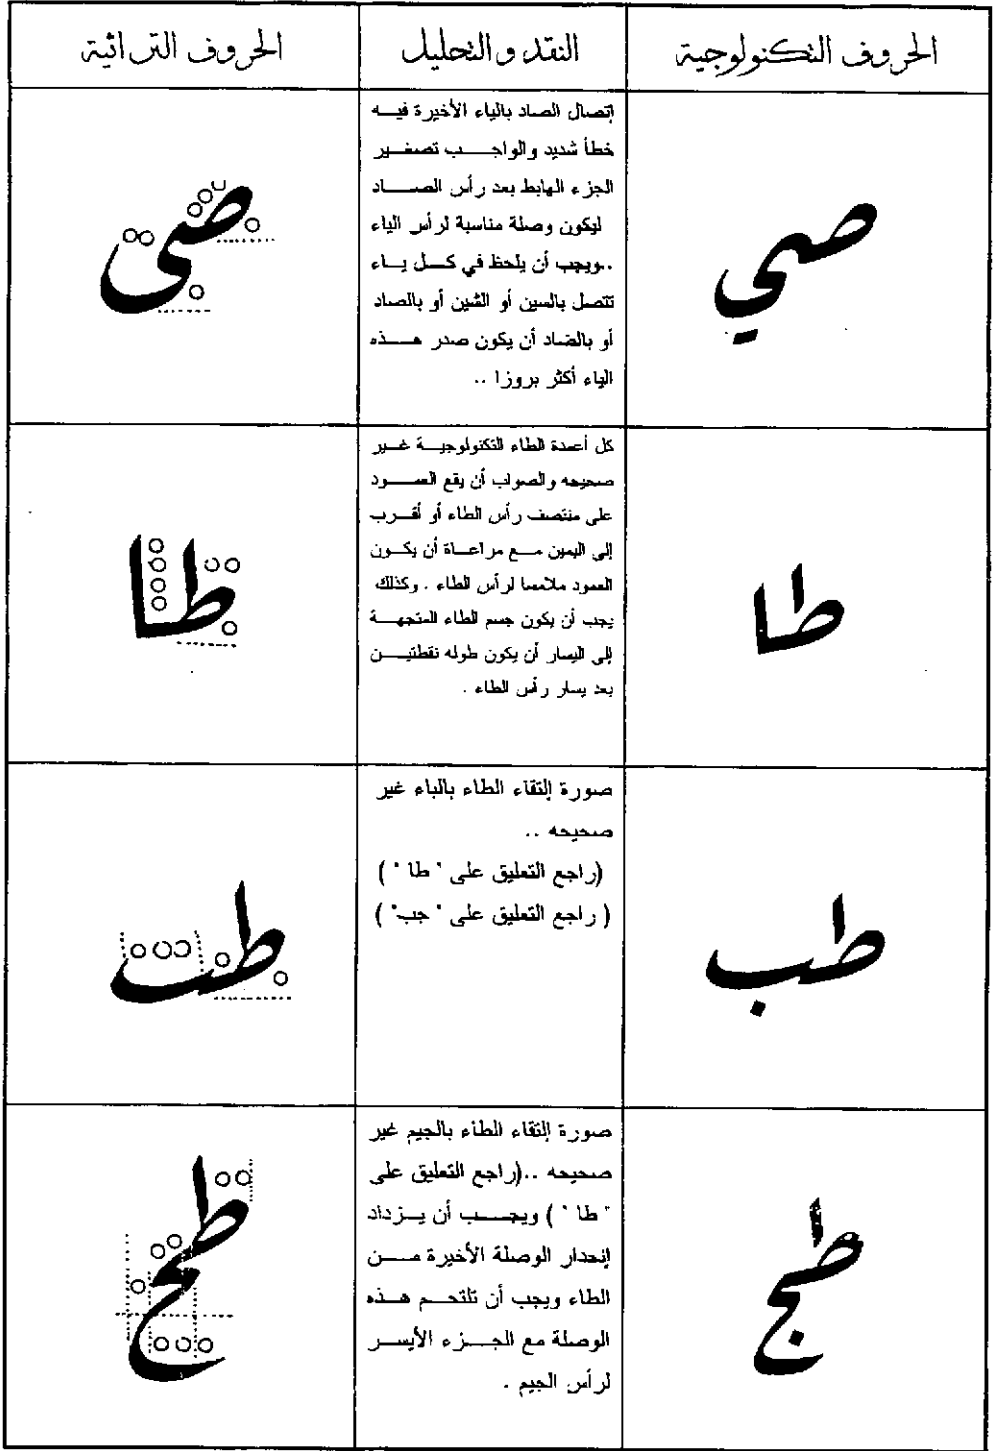 الحروف التكنولوجية
النقد والتحليل
الحروف التراثية
صي
إتصال الصاد بالياء الأخيرة فيه
خطأ شديد والواجب تصغير
الجزء الهابط بعد رأس الصاد
ليكون وصلة مناسبة لرأس الياء
..ويجب أن يلحظ في كل ياء
تتصل بالسين أو الشين أو بالصاد
أو بالضاد أن يكون صدر هذه
الياء أكثر بروزا ..
صى
طا
كل أعمدة الطاء التكنولوجية غير
صحيحه والصواب أن يقع العمود
على منتصف رأس الطاء أو أقرب
إلى اليمين مع مراعاة أن يكون
العمود ملامسا لرأس الطاء . وكذلك
يجب أن يكون جسم الطاء المتجهة
إلى اليسار أن يكون طوله نقطتين
بعد يسار رأس الطاء .
طا
طب
صورة إلتقاء الطاء بالباء غير
صحيحه ..
(راجع التعليق على " طا " )
( راجع التعليق على " جب" )
طٮ
طج
صورة إلتقاء الطاء بالجيم غير
صحيحه ..(راجع التعليق على
" طا " ) ويجب أن يزداد
إنحدار الوصلة الأخيرة من
الطاء ويجب أن تلتحم هذه
الوصلة مع الجزء الأيسر
لرأس الجيم .
طح